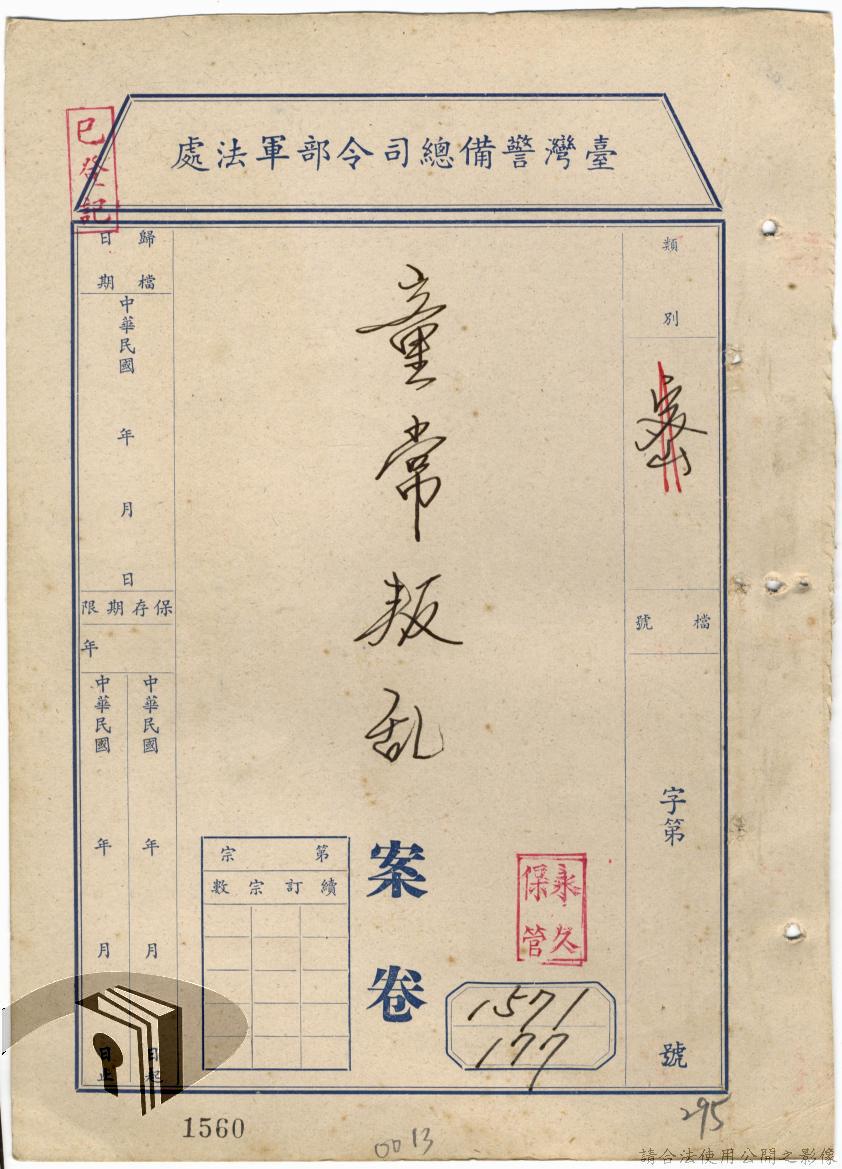 臺灣警備總司令部軍法處
已登記
類別
密
檔號
字第
號
童常叛乱
案卷
永久保管
1571
177
第宗
續訂宗數
歸檔日期
中華民國 年 月 日
保存期限
年
中華民國 年 月 日起
中華民國 年 月 日止
1560
0013
295
請合法使用公開之影像